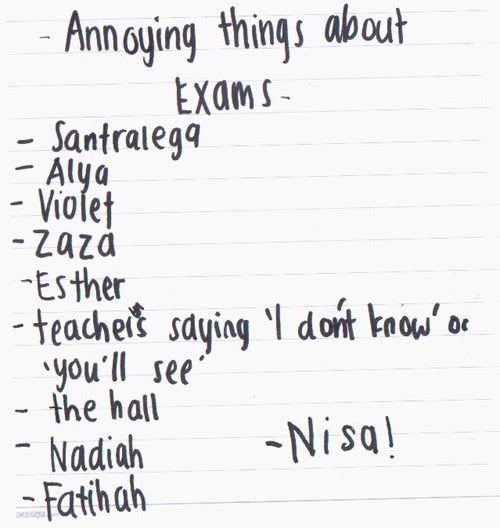 - Annoying things about
Exams -
- Santralega
- Alya
- Violet
- Zaza
- Esther
- teachers saying 'I don't know' or
'you'll see'
- the hall
- Nadiah
- Nisa!
- Fatihah